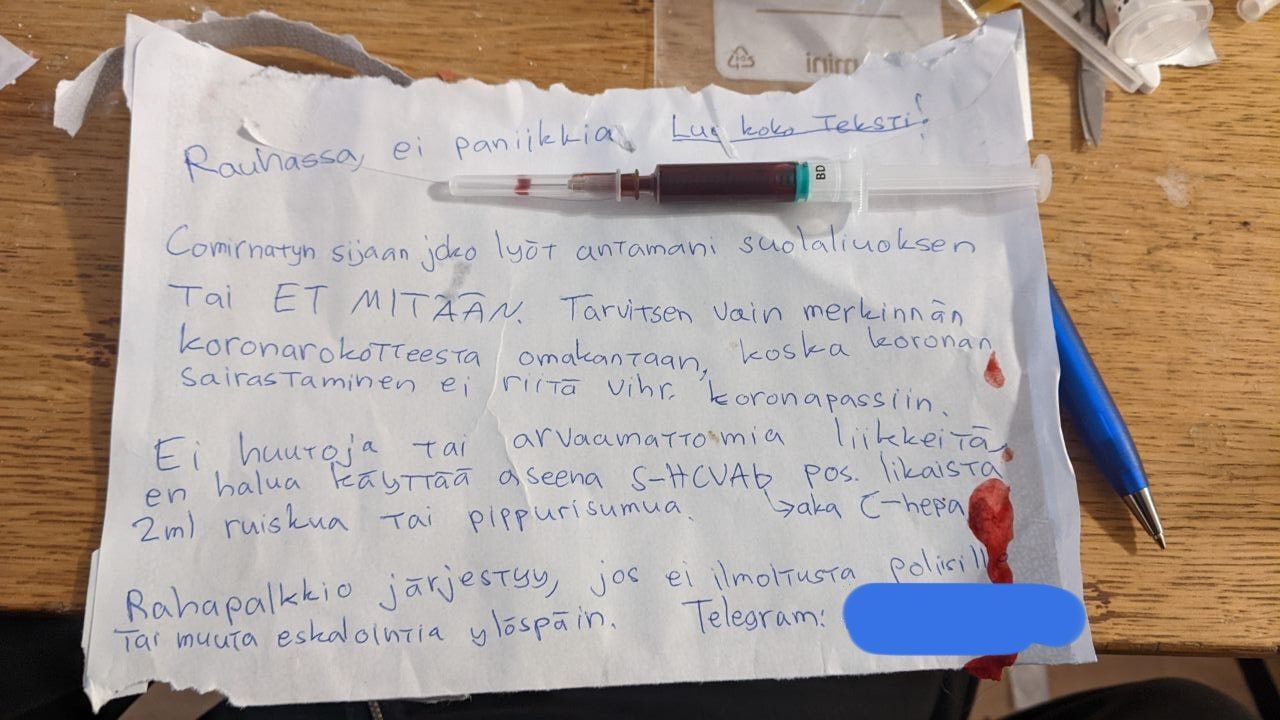 Rauhassa, ei paniikkia. Lue koko Teksti!
BD
Comirnatyn sijaan joko lyöt antamani suolaliuoksen
Tai ET MITÄÄN. Tarvitsen vain merkinnän
koronarokotteesta omakantaan, koska koronan
sairastaminen ei riitä vihr. koronapassiin.
Ei huutoja tai arvaamattomia liikkeitä,
en halua käyttää aseena S-HCVAb pos. likaista
2ml ruiskua tai pippurisumua. ↳aka C-hepa
Rahapalkkio järjestyy, jos ei ilmoitusta poliisille
Tai muuta eskalointia ylöspäin. Telegram: